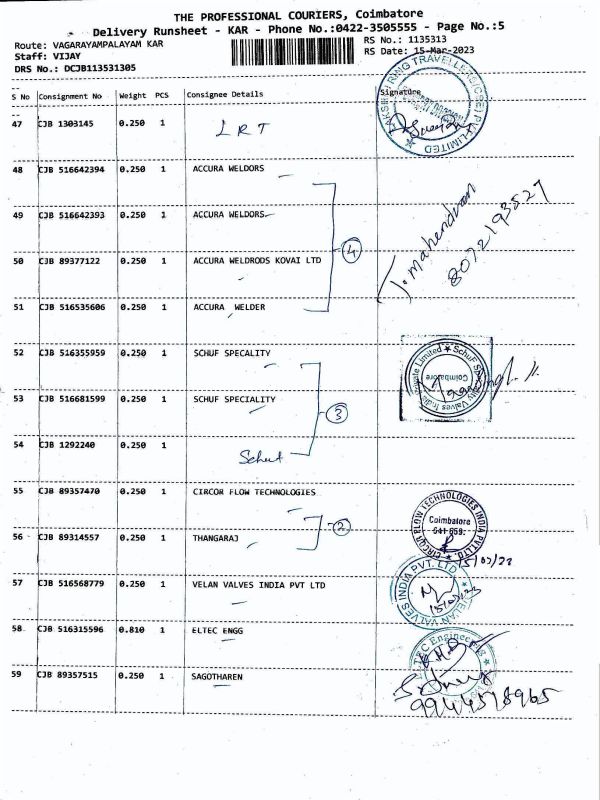 THE PROFESSIONAL COURIERS, Coimbatore
Delivery Runsheet - KAR - Phone No.:0422-3505555 - Page No.:5
Route: VAGARAYAMPALAYAM KAR
RS No.: 1135313
Staff: VIJAY
RS Date: 15-Mar-2023
DRS No.: DCJB113531305
S No Consignment No Weight PCS Consignee Details Signature
47 CJB 1303145 0.250 1 LRT
48 CJB 516642394 0.250 1 ACCURA WELDORS
49 CJB 516642393 0.250 1 ACCURA WELDORS
50 CJB 89377122 0.250 1 ACCURA WELDRODS KOVAI LTD
4
J. Mahendran
8072193527
51 CJB 516535606 0.250 1 ACCURA WELDER
52 CJB 516355959 0.250 1 SCHUF SPECALITY
53 CJB 516681599 0.250 1 SCHUF SPECIALITY
3
Coimbatore
54 CJB 1292240 0.250 1
55 CJB 89357470 0.250 1 CIRCOR FLOW TECHNOLOGIES
2
CIRCOR FLOW TECHNOLOGIES INDIA PVT LTD
Coimbatore
641 659.
56 CJB 89314557 0.250 1 THANGARAJ
57 CJB 516568779 0.250 1 VELAN VALVES INDIA PVT LTD
VELAN VALVES INDIA PVT. LTD.
58 CJB 516315596 0.810 1 ELTEC ENGG
59 CJB 89357515 0.250 1 SAGOTHAREN
9944578965